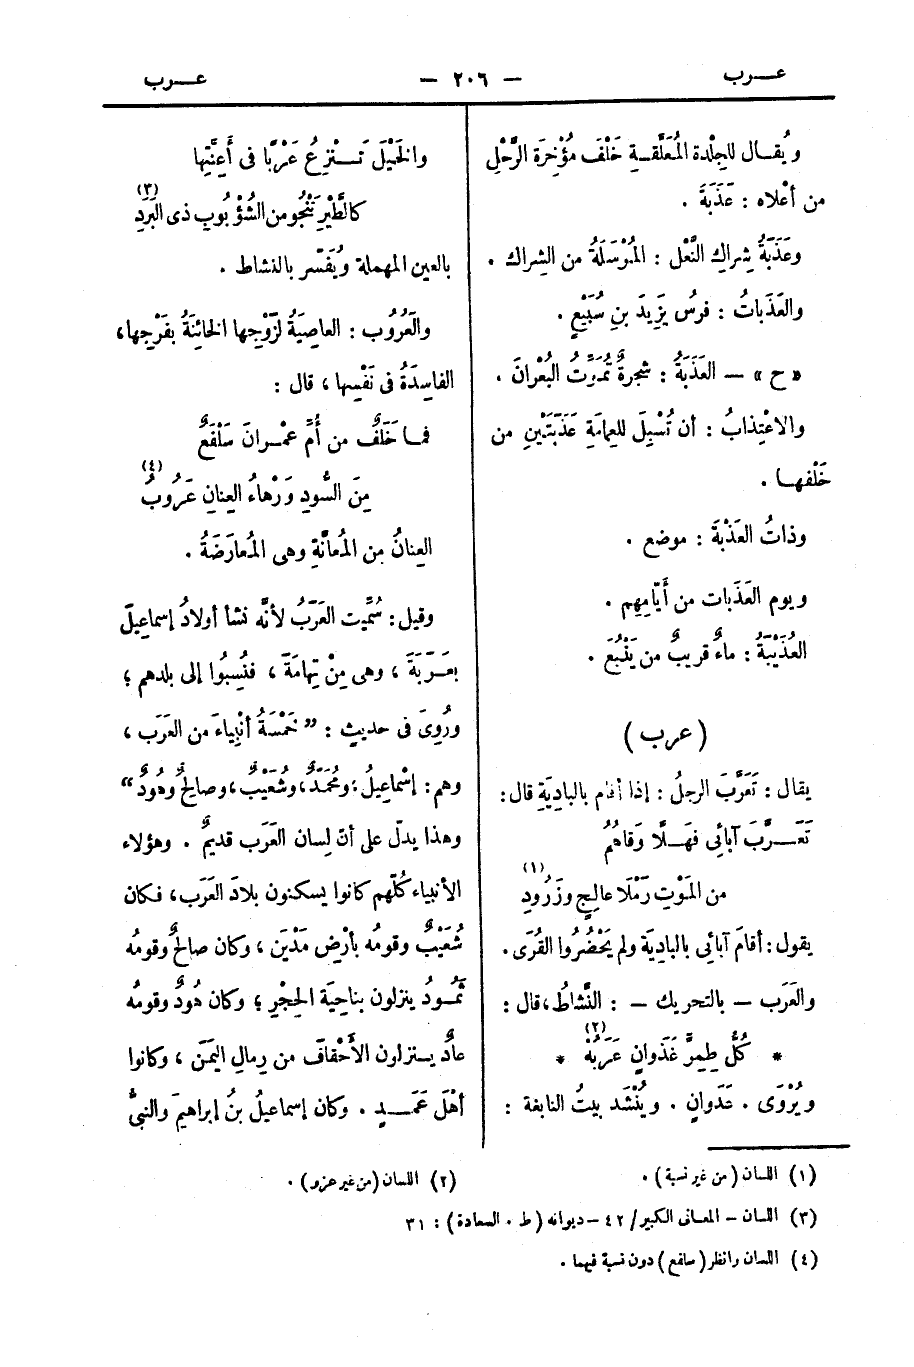 عرب — ٢٠٦ — عرب
ويُقال للجِلْدة المُعَلَّقة خَلْفَ مُؤْخِرَة الرَّحْلِ
من أَعْلاه : عَذَبَةَ .
وعَذَبَةُ شِراكِ النَّعْل : المُرْسَلَةُ من الشِراك .
والعَذَباتُ : فرسُ يَزِيدَ بنِ سُبَيْعٍ .
« ح » — العَذَبَةُ : شجرةٌ تُمَوِّتُ البُعْرانَ .
والاعْتِذابُ : أن تُسْبِلَ للعِمامَةِ عَذَبَتَيْنِ من
خَلْفها .
وذاتُ العَذْبَة : موضع .
ويوم العَذَبات من أَيّامِهِم .
العُذَيْبَةُ : ماءٌ قريبٌ من يَنْبُعَ .
(عرب)
يقال : تَعَرَّبَ الرجلُ : إذا أقام بالبادِيَةِ قال :
تَعَرَّبَ آبائِي فهَلَّا وَقاهُمُ
من المَوْتِ رَمْلَا عالِجٍ وزَرُودِ (١)
يقول : أقامَ آبائِي بالبادِيَة ولم يَحْضُرُوا القُرَى .
والعَرَب — بالتحريك — : النَّشاطُ ، قال :
* كُلُّ طِمِرٍّ غَذَوانٍ عَرَبُهْ (٢) *
ويُرْوَى . عَدَوانٍ . ويُنْشَد بيتُ النابغة :
والخَيْلَ تَنْزِعُ عَرْبًا فى أَعِنَّتِها
كالطَّيْرِ تَنْجُو من الشُّؤْبُوبِ ذى البَرَدِ (٣)
بالعين المهملة ويُفَسّر بالنشاط .
والعَرُوب : العاصِيَةُ لزَوْجِها الخائنَةُ بفَرْجِها،
الفاسِدَةُ فى نَفْسِها ، قال :
فما خَلَفٌ من أُمِّ عمْرانَ سَلْفَعٌ
مِنَ السُّودِ وَرْهاءُ العِنانِ عَرُوبُ (٤)
العِنانُ مِن المُعانَّةِ وهى المُعارَضَةُ .
وقيل : سُمِّيت العَرَبُ لأَنَّه نشأ أولادُ إسماعِيلَ
بعَرَبَةَ ، وهى مِنْ تِهامَةَ ، فنُسِبُوا إلى بلدهم ؛
ورُوِىَ فى حديثٍ : " خَمْسَةُ أنْبِياءَ من العَرَب ،
وهم : إسْماعِيلُ ؛ ومُحَمَّدٌ، وشُعَيْبٌ، وصالِحٌ وهُودٌ "
وهذا يدلّ على أنّ لِسان العَرَب قديمٌ . وهؤلاء
الأنبياء كُلّهم كانوا يسكنون بلادَ العَرَب، فكان
شُعَيْبٌ وقومُه بأرْضِ مَدْيَنَ ، وكان صالحٌ وقومُه
ثَمُودُ ينزلون بناحِيَة الحِجْرِ ؛ وكان هُودٌ وقومُه
عادٌ يستزلون الأَحْقافَ من رِمالِ اليَمَن ، وكانوا
أَهْلَ عَمَدٍ . وكان إسماعيلُ بنُ إبراهيمَ والنبىُّ
(١) اللسان (من غير نسبة) . (٢) اللسان (من غير عزو) .
(٣) اللسان – المعانى الكبير/ ٤٢ – ديوانه (ط . السعادة) : ٣١
(٤) اللسان وانظر (سلفع) دون نسبة فيهما .